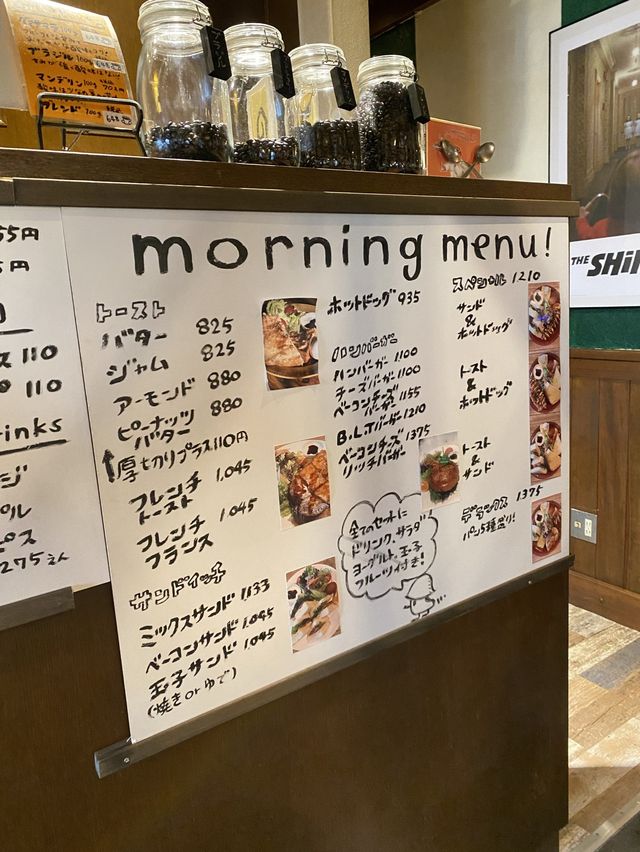 ブラジル 100g 648
マンデリン 100g
ブレンド 100g 648
55円
5円
ス 110
プ 110
rinks
ジ
プル
ピス
275えん
morning menu!
トースト
バター 825
ジャム 825
アーモンド 880
ピーナッツ
バター 880
↑厚切りプラス110円
フレンチ
トースト 1,045
フレンチ
フランス 1,045
サンドイッチ
ミックスサンド 1,133
ベーコンサンド 1,045
玉子サンド 1,045
(焼きorゆで)
ホットドッグ 935
ハンバーガー
ハンバーガー 1100
チーズバーガー 1100
ベーコンチーズ
バーガー 1155
B.L.Tバーガー 1210
ベーコンチーズ 1375
リッチバーガー
全てのセットに
ドリンク、サラダ
ヨーグルト、玉子
フルーツ付き!
スペシャル 1210
サンド
&
ホットドッグ
トースト
&
ホットドッグ
トースト
&
サンド
デラックス 1375
パン5種盛り!
THE SHiN